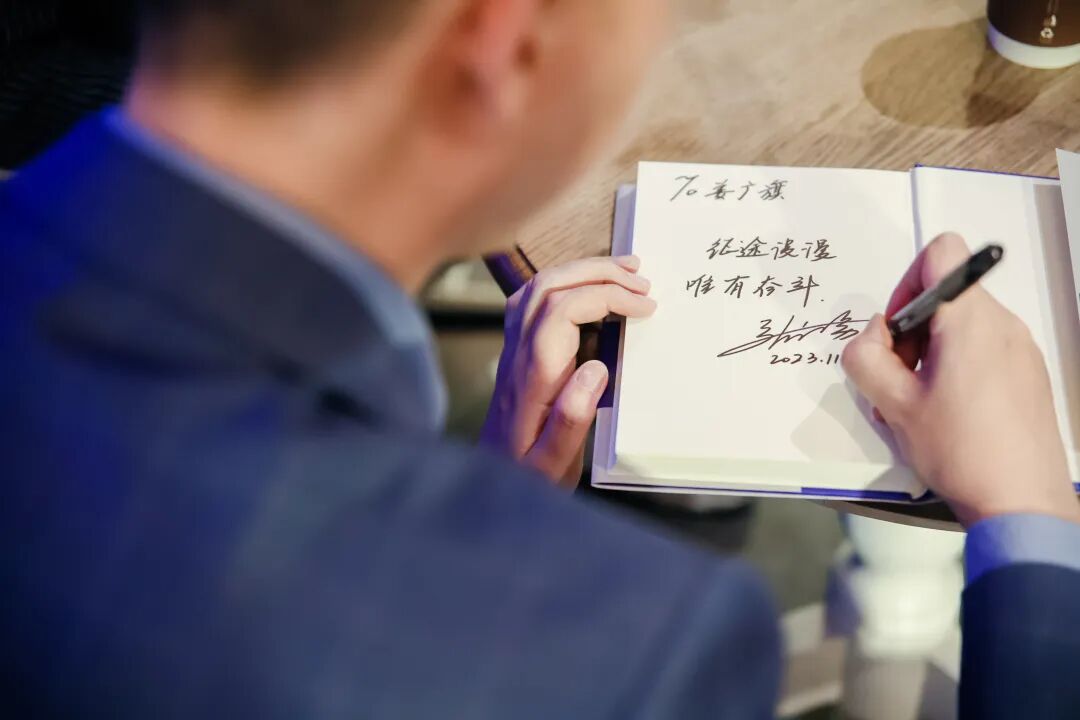 To 姜广旗
征途漫漫
唯有奋斗.
2023.11